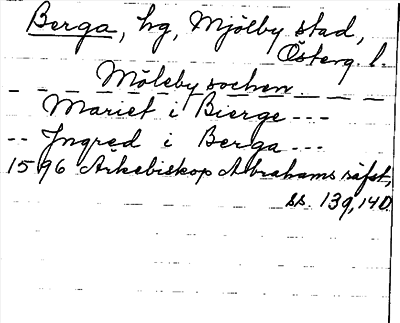 Berga, hg, Mjölby stad,
Österg. l.
Möleby sochen.
Mariet i Bierge ---
-- Ingred i Berga ---
1596 Arkebiskop Abrahams räfst,
ss. 139, 140.